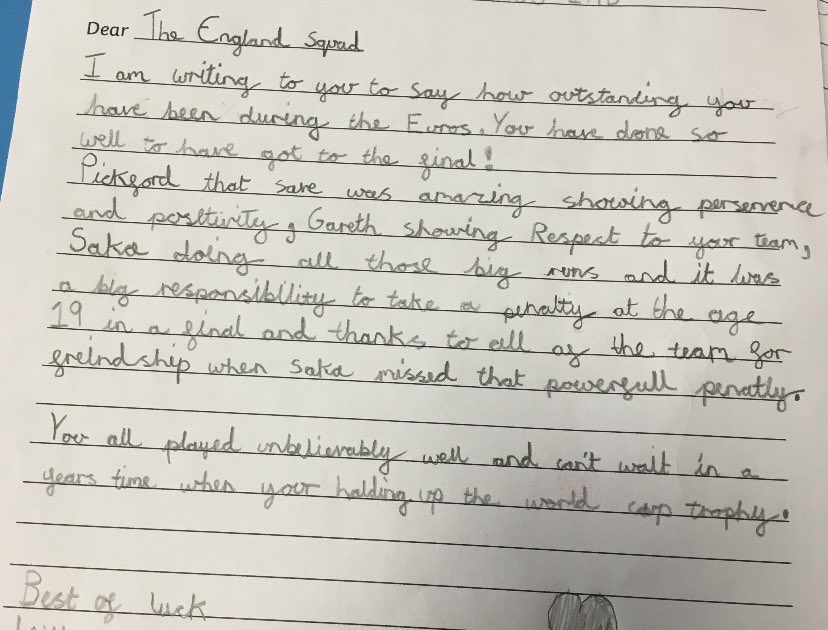 Dear The England Squad
I am writing to you to say how outstanding you
have been during the Euros. You have done so
well to have got to the final!
Pickford that save was amazing showing perservence
and positivity, Gareth showing Respect to your team,
Saka doing all those big runs and it was
a big responsibility to take a penalty at the age
19 in a final and thanks to all of the team for
freindship when Saka missed that powerfull penatly.
You all played unbelievably well and can't wait in a
years time when your halding up the world cap trophy.
Best of luck